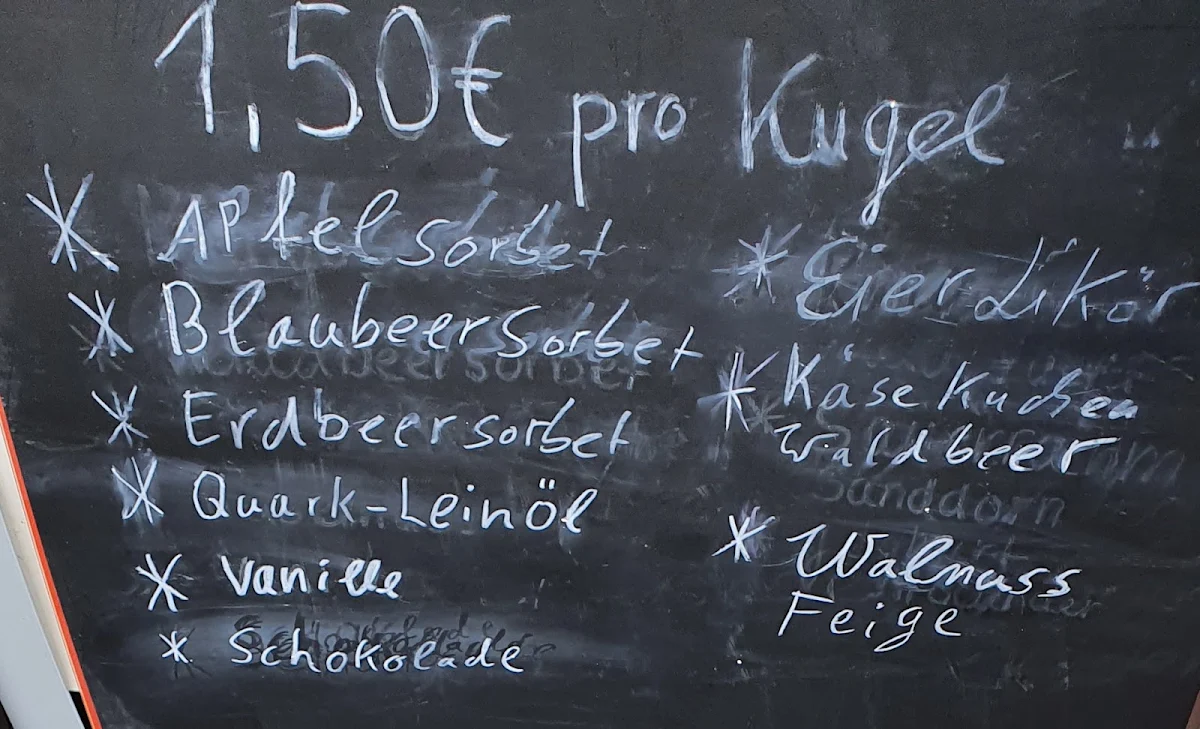 1,50€ pro Kugel
* Apfelsorbet
* Blaubeersorbet
* Erdbeersorbet
* Quark-Leinöl
* Vanille
* Schokolade
* Eierlikör
* Käsekuchen
Waldbeer
* Walnuss
Feige